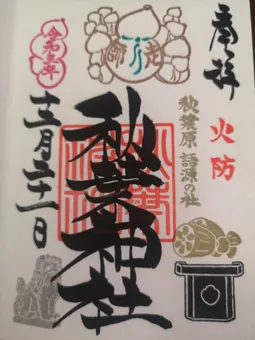 奉拝
火防
秋葉原 語源の社
秋葉神社
令和三年
十二月三十一日